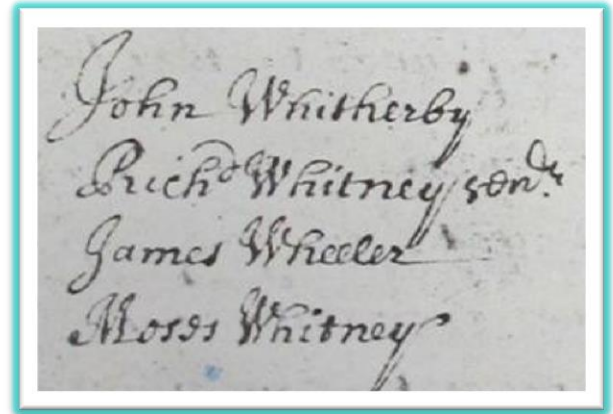 John Whitherby
Rich^d Whitney sen^r.
James Wheeler
Moses Whitney